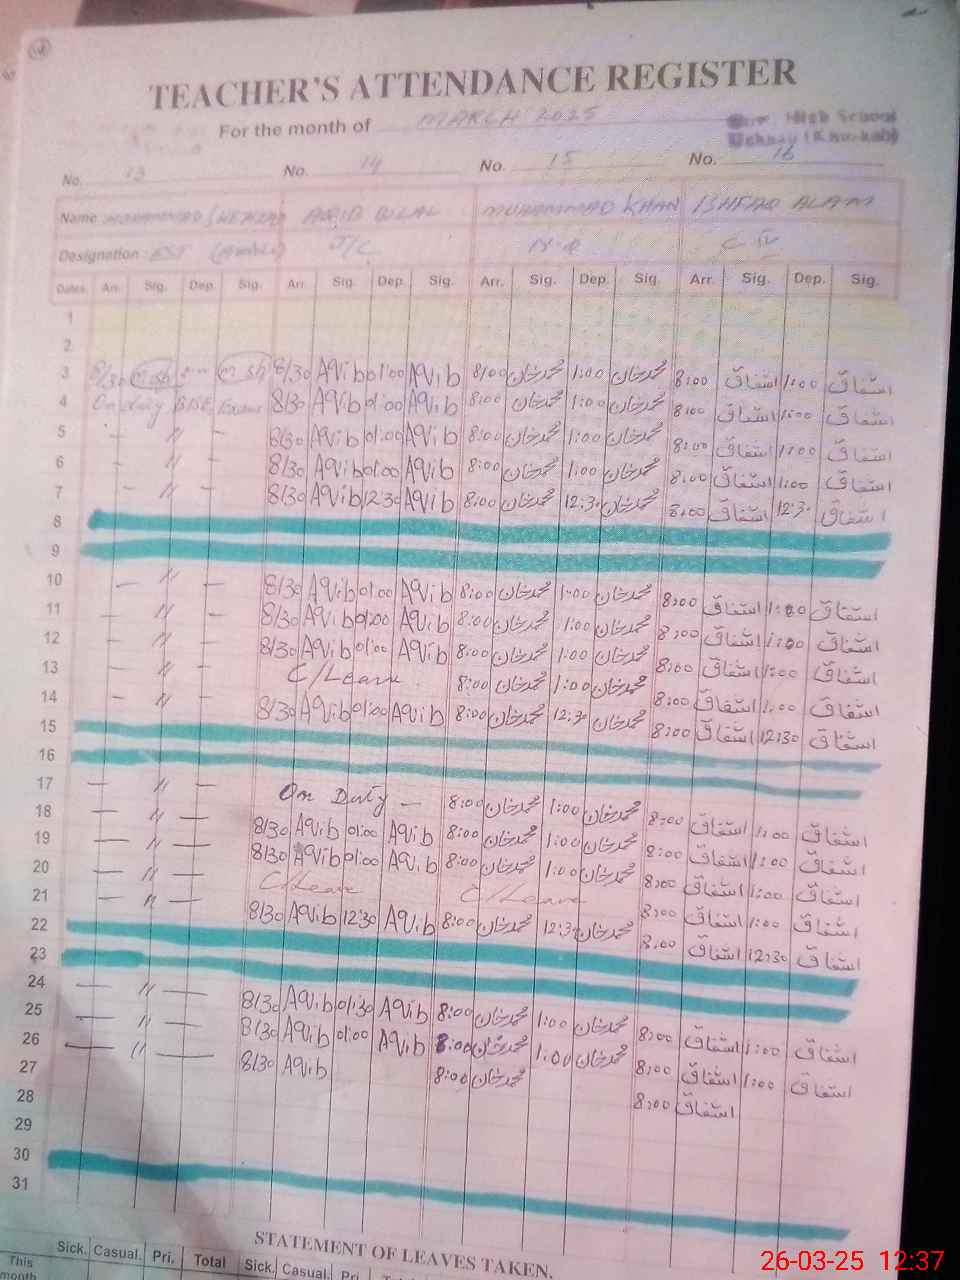 TEACHER'S ATTENDANCE REGISTER
For the month of MARCH 2025
High School
No. 13 No. 14 No. 15 No. 16
Name MUHAMMAD AQIB BILAL MUHAMMAD KHAN ISHFAQ ALAM
Designation :
Dates Arr. Sig. Dep. Sig. Arr. Sig. Dep. Sig. Arr. Sig. Dep. Sig. Arr. Sig. Dep. Sig.
1
2
3 8/30 8/30 AQib 01:00 AQib 8:00 محمدخان 1:00 محمدخان 8:00 اشفاق 1:00 اشفاق
4 On duty BISE 8/30 AQib 01:00 AQib 8:00 محمدخان 1:00 محمدخان 8:00 اشفاق 1:00 اشفاق
5 — // — 8/30 AQib 01:00 AQib 8:00 محمدخان 1:00 محمدخان 8:00 اشفاق 1:00 اشفاق
6 — // — 8/30 AQib 01:00 AQib 8:00 محمدخان 1:00 محمدخان 8:00 اشفاق 1:00 اشفاق
7 — // — 8/30 AQib 12:30 AQib 8:00 محمدخان 12:30 محمدخان 8:00 اشفاق 12:30 اشفاق
8
9
10 — // — 8/30 AQib 01:00 AQib 8:00 محمدخان 1:00 محمدخان 8:00 اشفاق 1:00 اشفاق
11 — // — 8/30 AQib 01:00 AQib 8:00 محمدخان 1:00 محمدخان 8:00 اشفاق 1:00 اشفاق
12 — // — 8/30 AQib 01:00 AQib 8:00 محمدخان 1:00 محمدخان 8:00 اشفاق 1:00 اشفاق
13 — // — C/Leave 8:00 محمدخان 1:00 محمدخان 8:00 اشفاق 1:00 اشفاق
14 — // — 8/30 AQib 01:00 AQib 8:00 محمدخان 12:30 محمدخان 8:00 اشفاق 12:30 اشفاق
15
16
17 — // — On Duty — 8:00 محمدخان 1:00 محمدخان 8:00 اشفاق 1:00 اشفاق
18 — // — 8/30 AQib 01:00 AQib 8:00 محمدخان 1:00 محمدخان 8:00 اشفاق 1:00 اشفاق
19 — // — 8/30 AQib 01:00 AQib 8:00 محمدخان 1:00 محمدخان 8:00 اشفاق 1:00 اشفاق
20 — // — C/Leave C/Leave 8:00 اشفاق 1:00 اشفاق
21 — // — 8/30 AQib 12:30 AQib 8:00 محمدخان 12:30 محمدخان 8:00 اشفاق 12:30 اشفاق
22
23
24 — // — 8/30 AQib 01:30 AQib 8:00 محمدخان 1:00 محمدخان 8:00 اشفاق 1:00 اشفاق
25 — // — 8/30 AQib 01:00 AQib 8:00 محمدخان 1:00 محمدخان 8:00 اشفاق 1:00 اشفاق
26 — // — 8/30 AQib 8:00 محمدخان 8:00 اشفاق
27
28
29
30
31
STATEMENT OF LEAVES TAKEN.
Sick. Casual. Pri. Total Sick. Casual. Pri.
This month
26-03-25 12:37